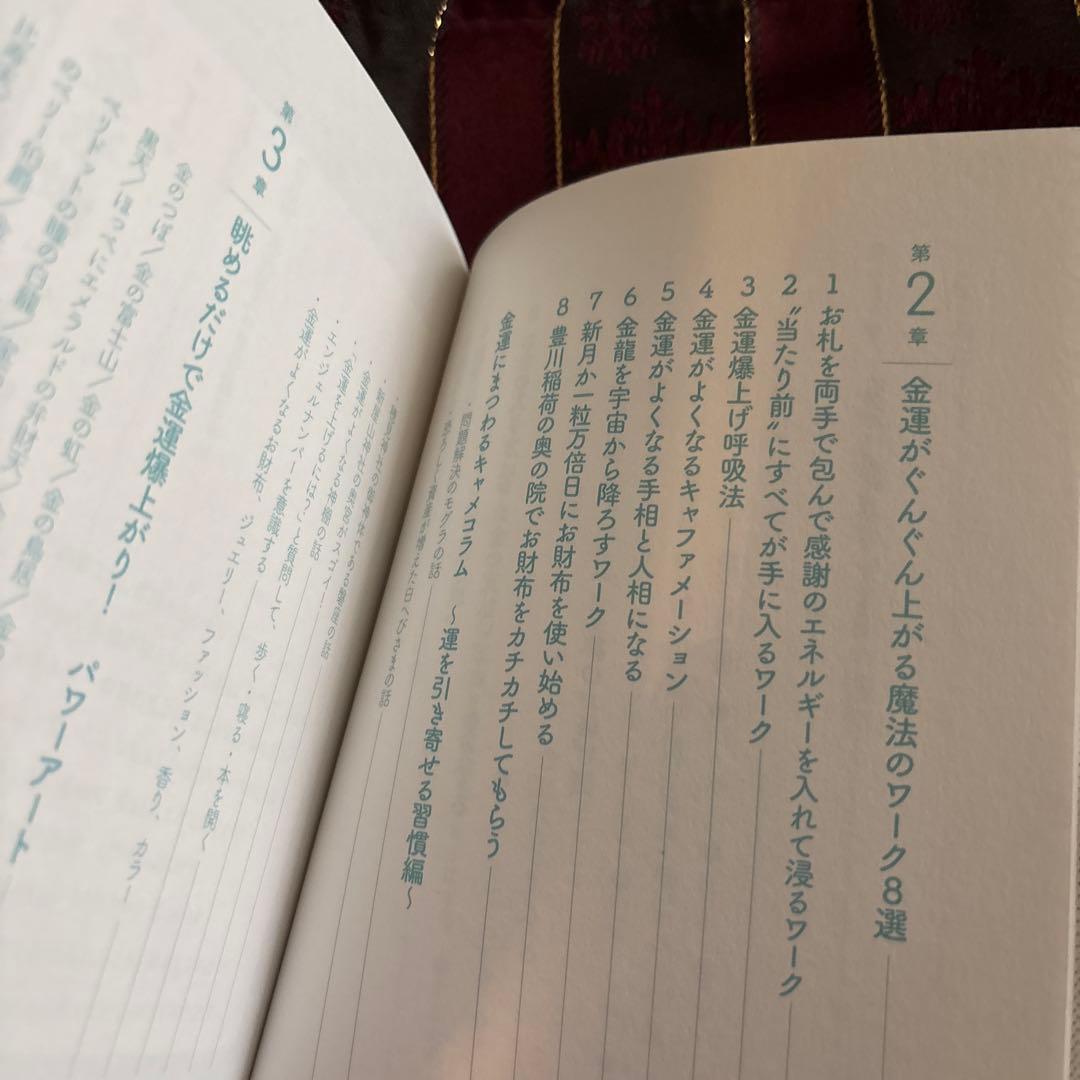 第2章 金運がぐんぐん上がる魔法のワーク8選
1 お札を両手で包んで感謝のエネルギーを入れて浸るワーク
2 "当たり前"にすべてが手に入るワーク
3 金運爆上げ呼吸法
4 金運がよくなるキャファメーション
5 金運がよくなる手相と人相になる
6 金龍を宇宙から降ろすワーク
7 新月か一粒万倍日にお財布を使い始める
8 豊川稲荷の奥の院でお財布をカチカチしてもらう
金運にまつわるキャメコラム 〜運を引き寄せる習慣編〜
・問題解決のモグラの話
資産が増えた白へびさまの話
御神体である磐座の話
神社の奥宮がスゴイ!
・「金運を上げるには?」と質問して、歩く・寝る・本を開く
・エンジェルナンバーを意識する
・金運がよくなるお財布、ジュエリー、ファッション、香り、カラー
第3章 眺めるだけで金運爆上がり! パワーアート
金のつぼ/金の富士山/金の虹/金の鳥居/
黒天/ほっぺにエメラルドの弁財天/
ペリドットの瞳の白龍/